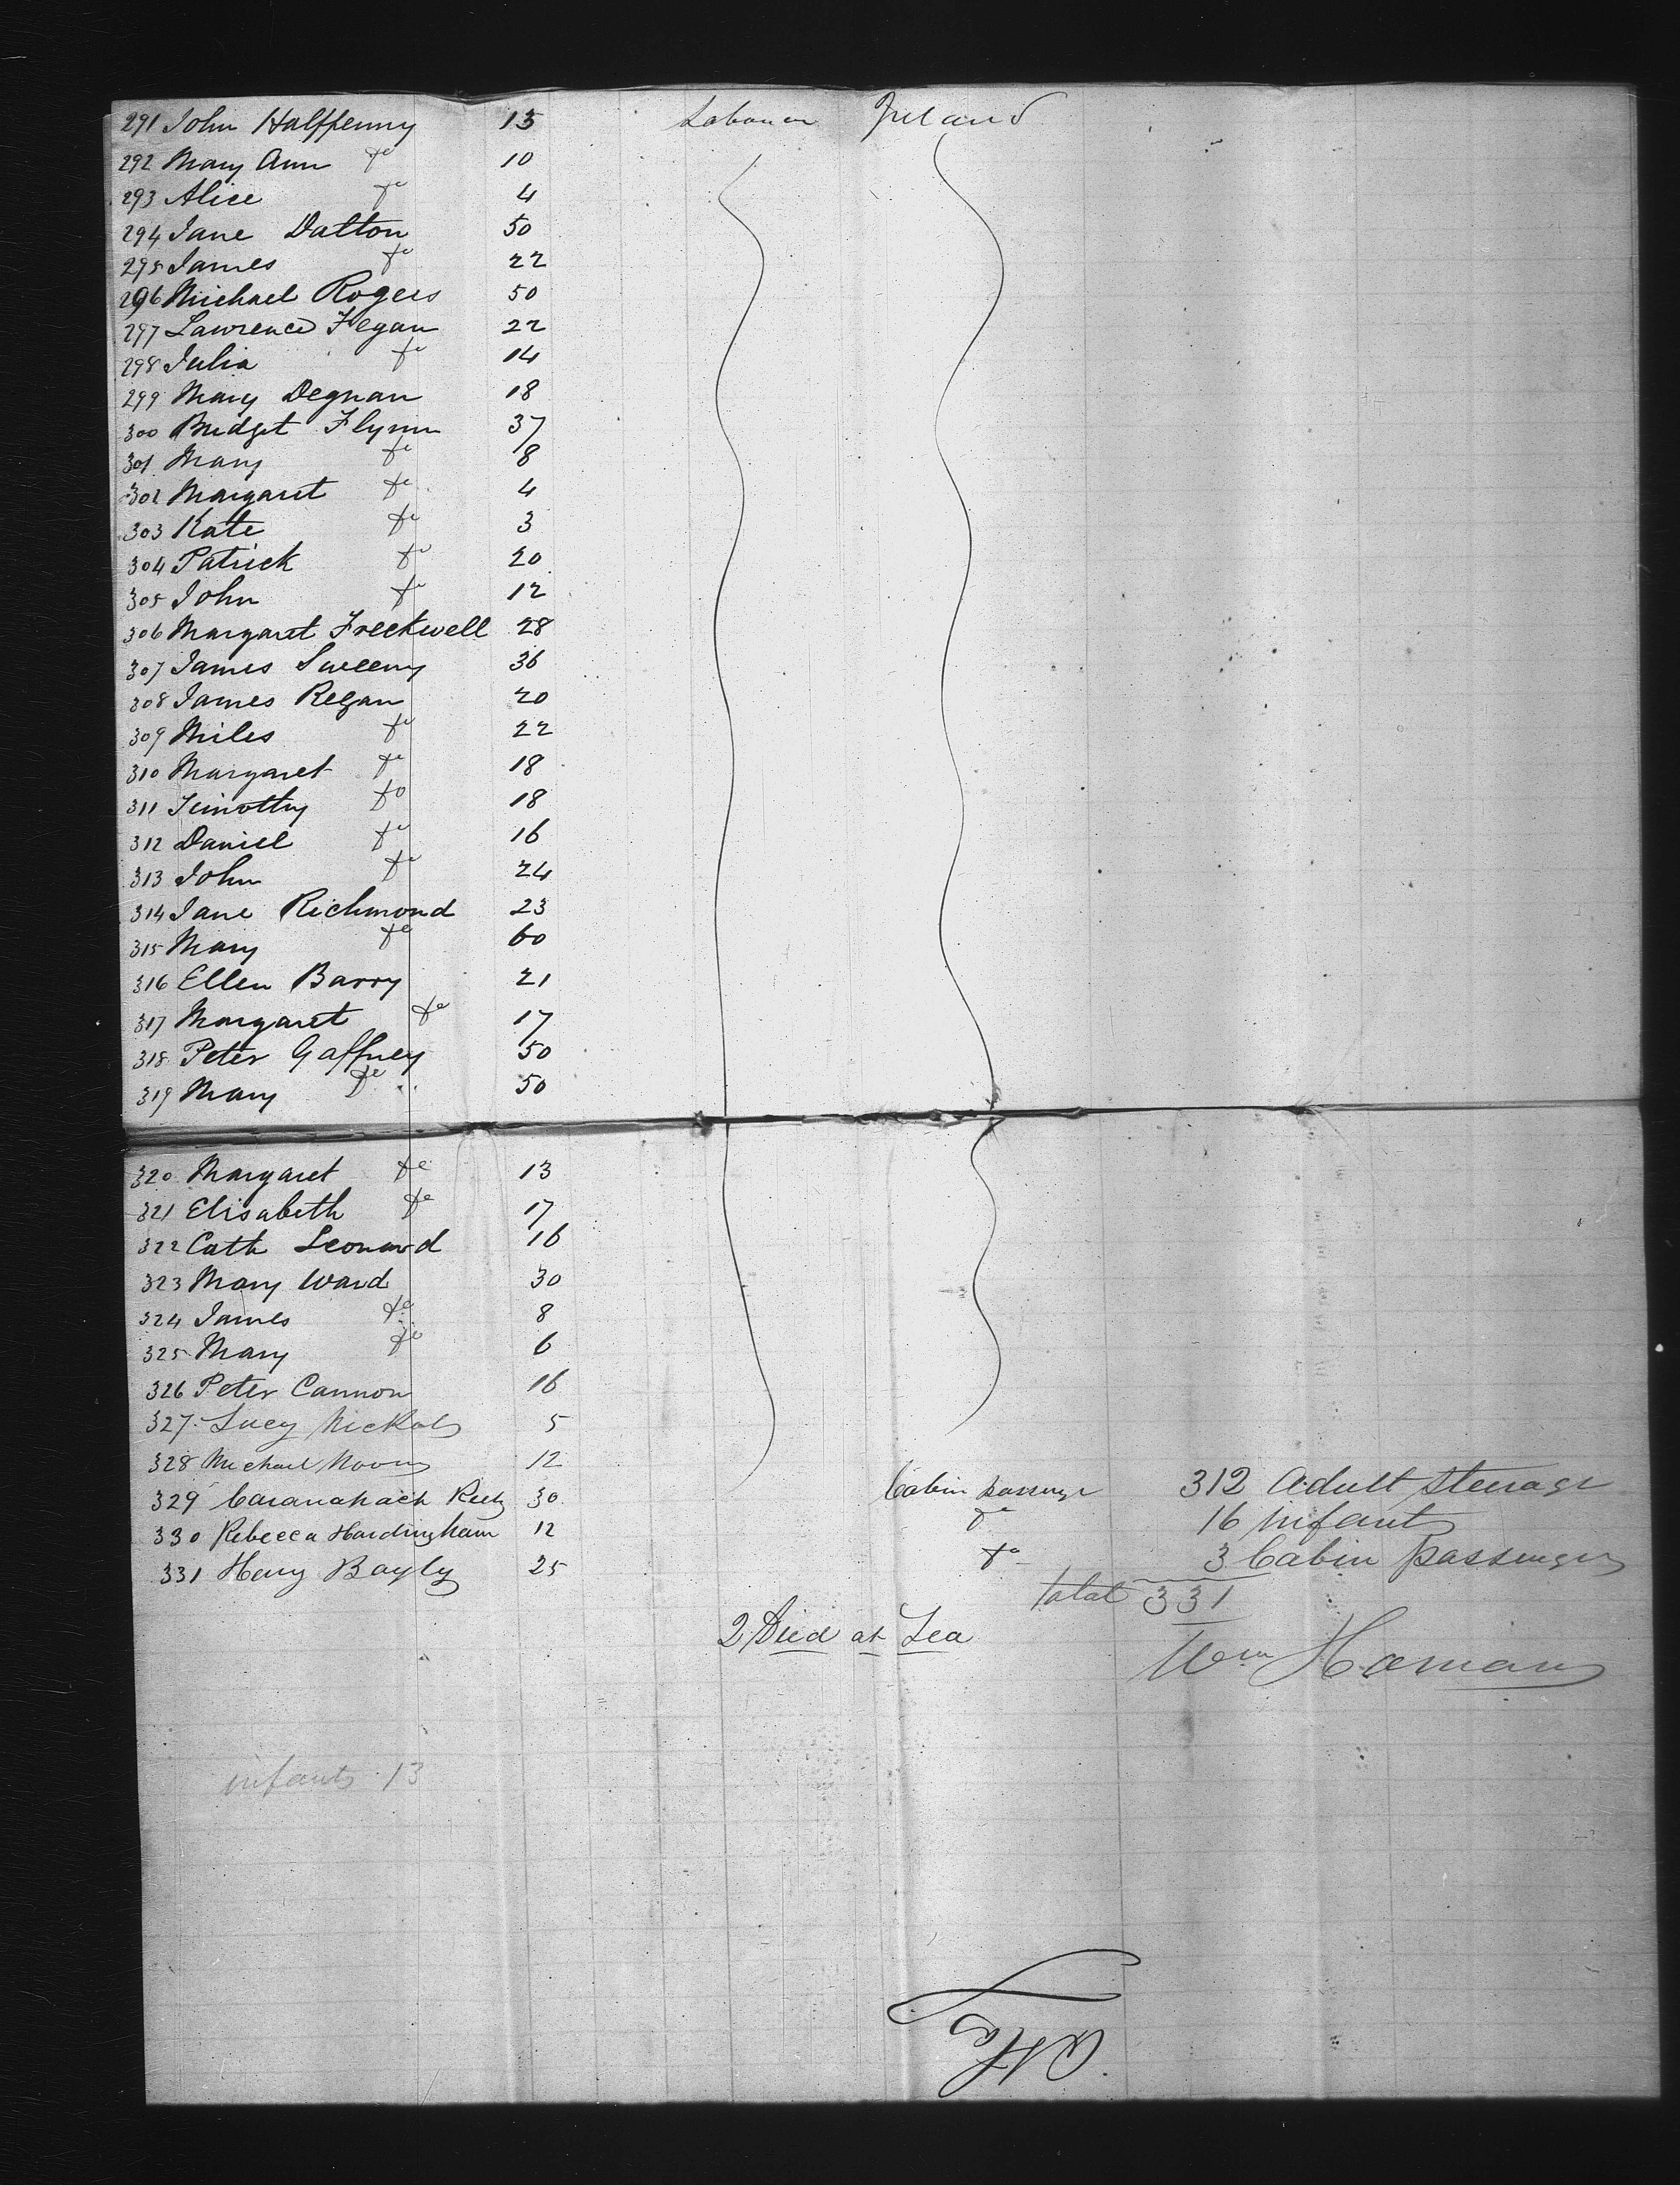 291 John Halfpenny 15 Labourer Ireland
292 Mary Ann do 10
293 Alice do 4
294 Jane Dalton 50
295 James do 22
296 Michael Rogers 50
297 Lawrence Fegan 22
298 Julia do 14
299 Mary Degnan 18
300 Bridget Flynn 37
301 Mary do 8
302 Margaret do 4
303 Kate do 3
304 Patrick do 20
305 John do 12
306 Margaret Freckwell 28
307 James Sweeny 36
308 James Regan 20
309 Miles do 22
310 Margaret do 18
311 Timothy do 18
312 Daniel do 16
313 John do 24
314 Jane Richmond 23
315 Mary do 60
316 Ellen Barry 21
317 Margaret do 17
318 Peter Gaffney 50
319 Mary do 50
320 Margaret do 13
321 Elisabeth do 17
322 Cath Leonard 16
323 Mary Ward 30
324 James do 8
325 Mary do 6
326 Peter Cannon 16
327 Lucy Nickols 5
328 Michael 12
329 30 Cabin passenger 312 Adult steerage
330 Rebecca Hardingham 12 do 16 infants
331 Henry Bayly 25 do 3 Cabin passengers
total 331
2 Died at Sea
Wm Homan
infants 13